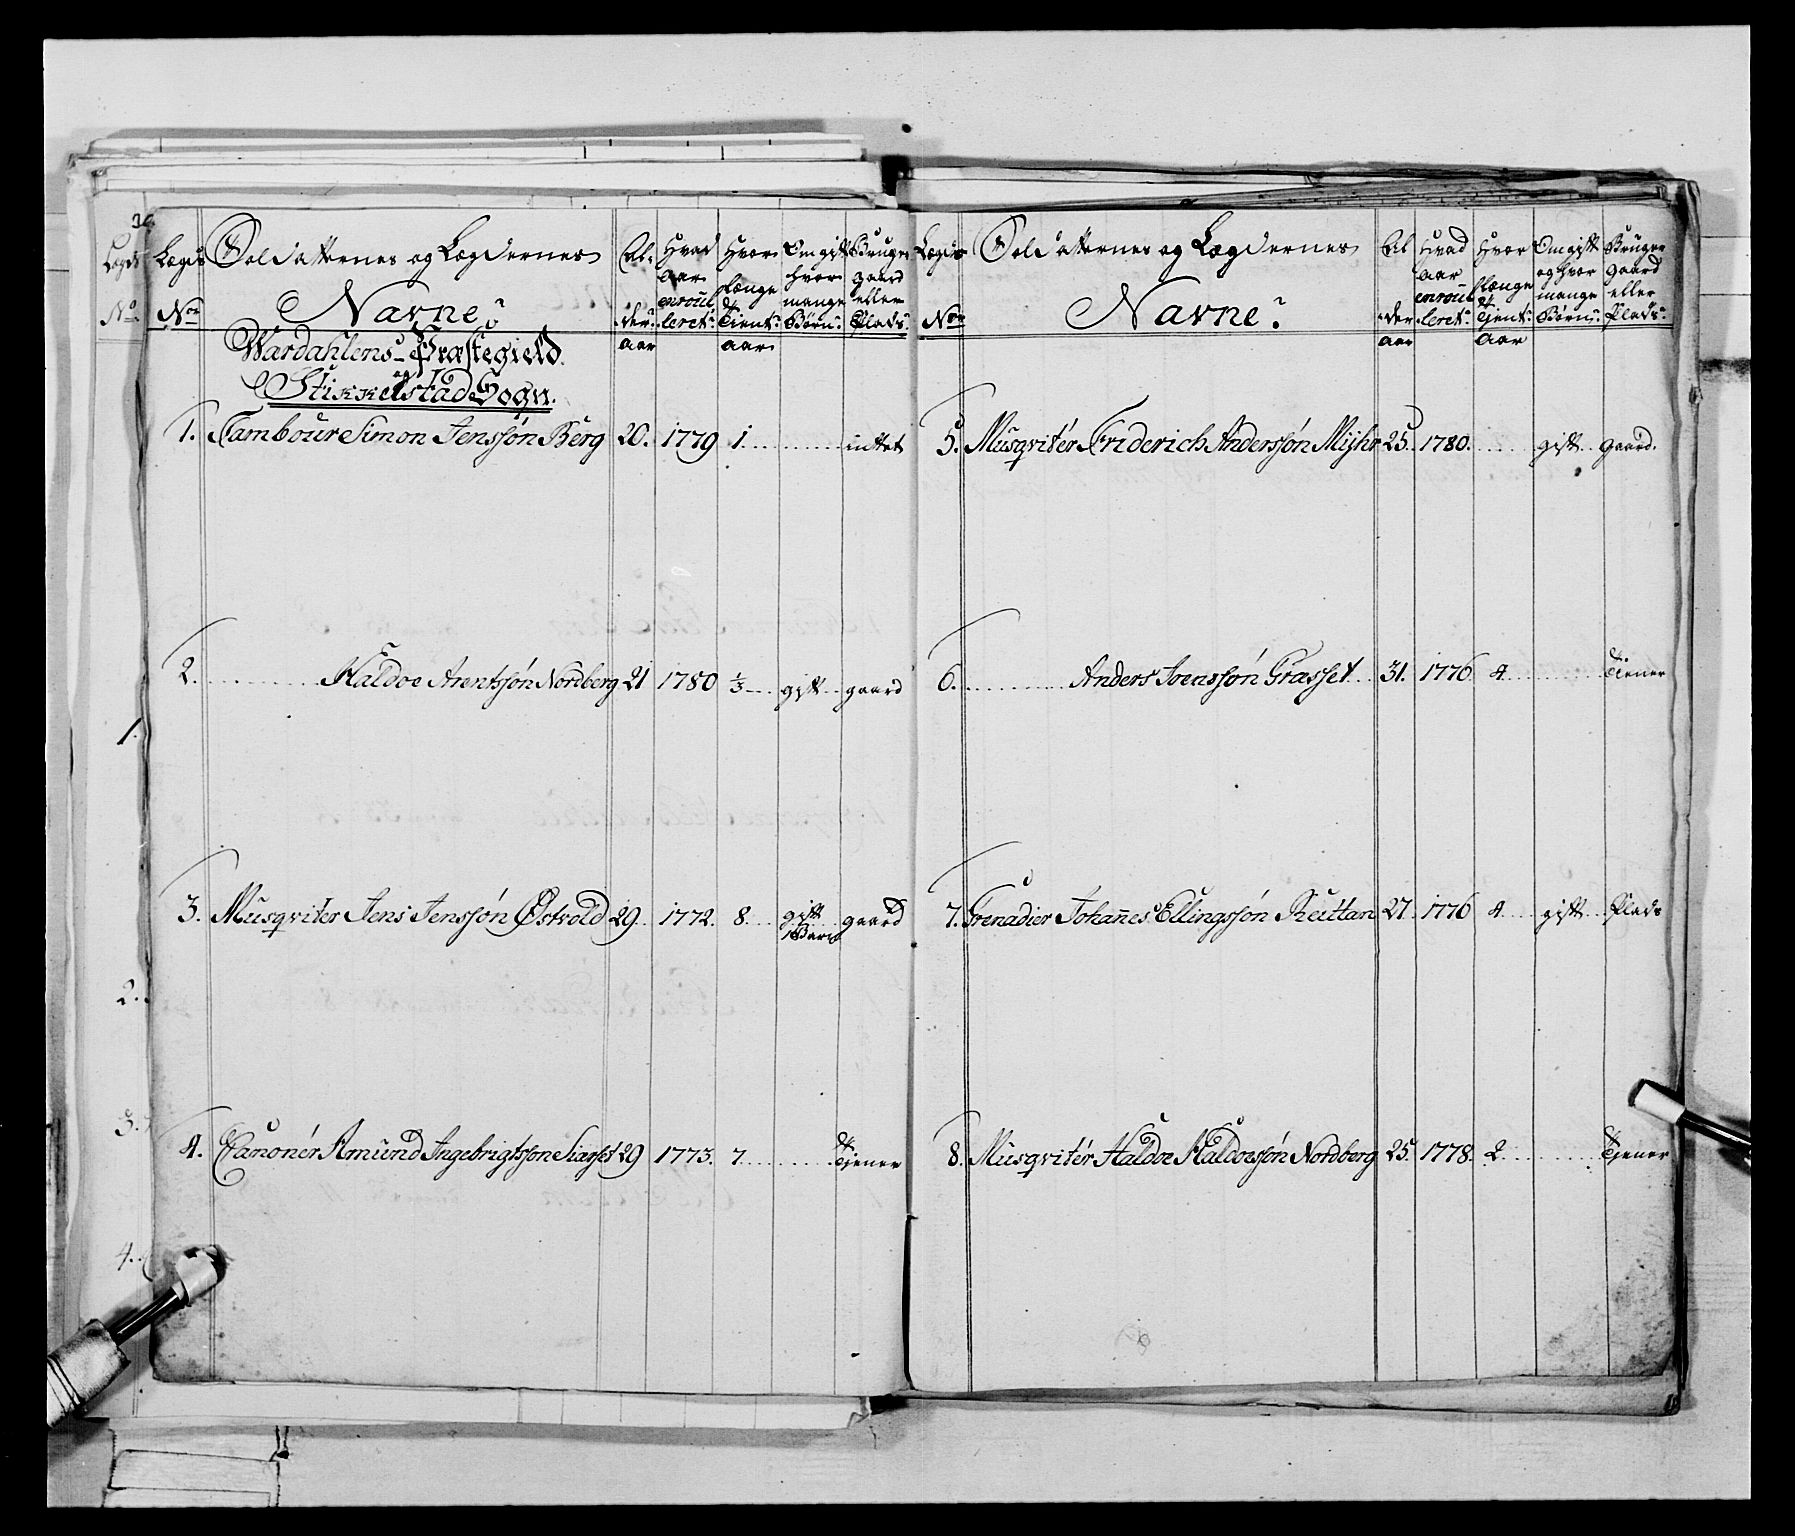 Lægds
No
Lægds
Nor
Soldatternes og Lægdernes
Navne?
Al-
der
aar
Hvad
aar
enroul
leret
Hvor
længe
tient
aar
Om gift
hvor
mange
Børn
Bruger
gaard
eller
Plads
Wardahlens Præstegield
og
Stikkelstad Sogn.
1. Tambour Simon Jenssøn Berg 20. 1779 1. intet
2. Haldoe Arentsøn Nordberg 21 1780 1/3 gift gaard
3. Musqviter Jens Jenssøn Østvold 29 1772. 8 gift gaard
1 Barn
4. Canonér Amund Ingebrigtsøn 29 1773. 7 Tjener
1.
2.
3.
4.
Lægds
Nor
Soldatternes og Lægdernes
Navne?
Al
der
aar
Hvad
aar
enroul
leret
Hvor
længe
tjent
aar
Om gift
og hvor
mange
Børn
Bruger
gaard
eller
Plads
5. Musqvitér Friderich Anderssøn Mijhr 25. 1780. gift gaard.
6. Anders Joenssøn Græsset 31. 1776 4 Tiener
7. Grenadier Johannes Ellingssøn Reittan 27 1776 4 gift Plads
8. Musqvitér Haldoe Haldorsøn Nordberg 25. 1778. 2 Tjener